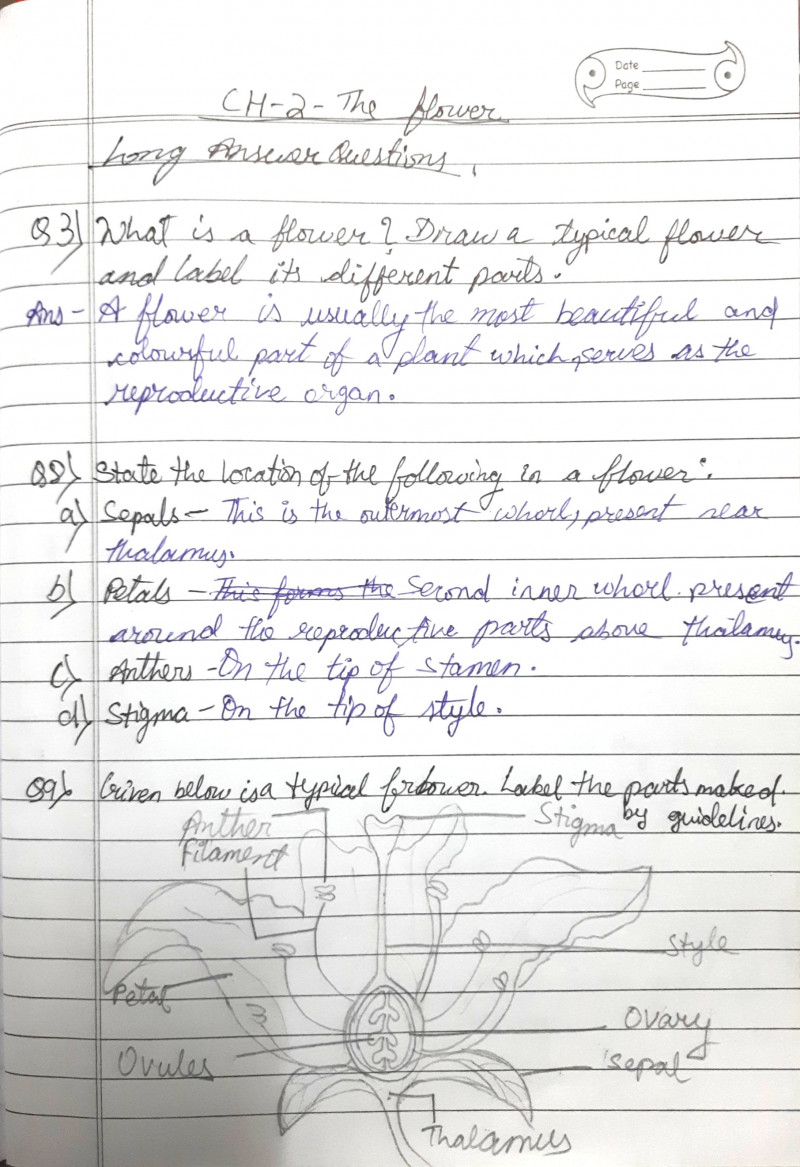 Date
Page
CH-2-The flower
Long Answer Questions.
Q3) What is a flower? Draw a typical flower
and label its different parts.
Ans - A flower is usually the most beautiful and
colourful part of a plant which, serves as the
reproductive organ.
Q8) State the location of the following in a flower:
a) Sepals - This is the outermost whorl, present near
thalamus.
b) Petals - This forms the Second inner whorl present
around the reproductive parts above thalamus.
c) Anthers - On the tip of stamen.
d) Stigma - On the tip of style.
Q9) Given below is a typical flower. Label the parts maked
by guidelines.
Anther
Stigma
Filament
Style
Petal
Ovary
Ovules
Sepal
Thalamus